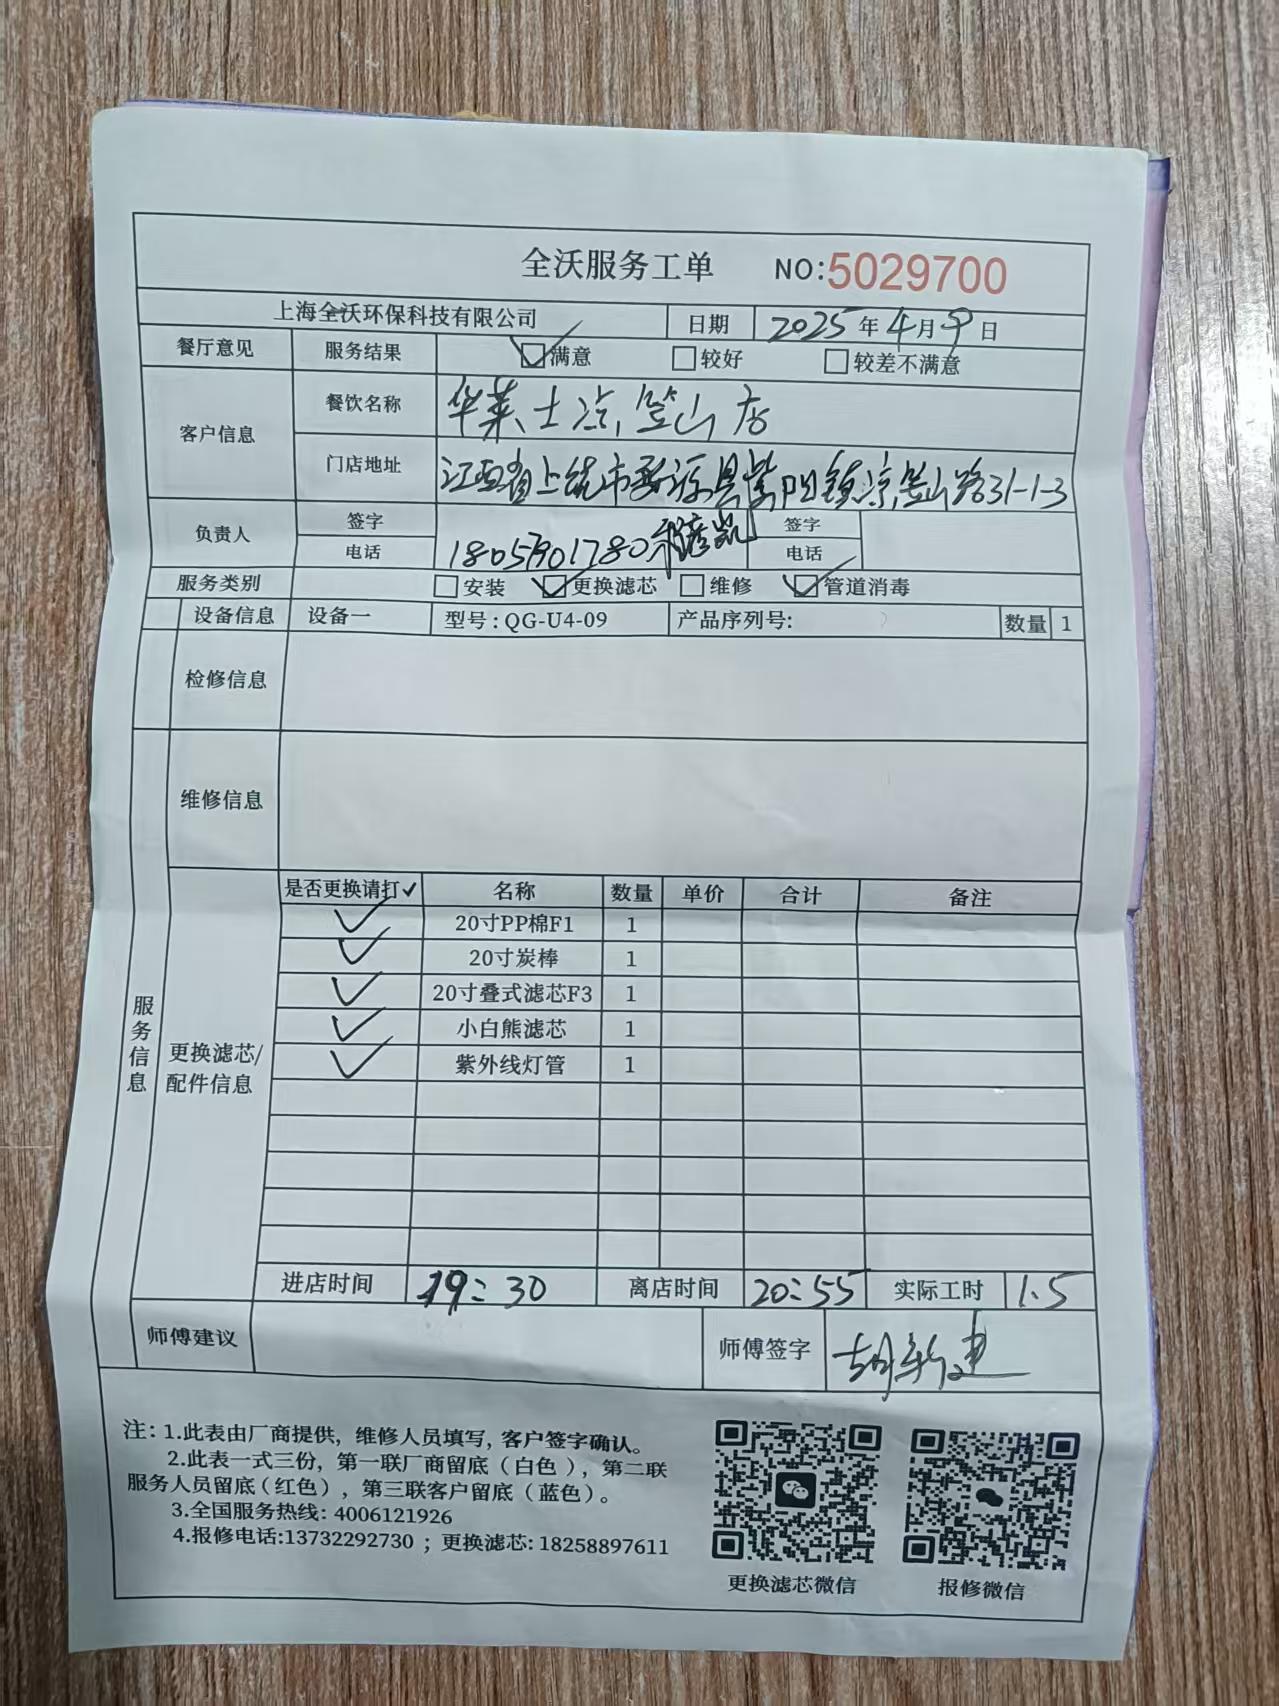 全沃服务工单 NO:5029700
上海全沃环保科技有限公司 日期 2025年4月9日
餐厅意见 服务结果 满意 较好 较差不满意
客户信息 餐饮名称 华莱士凉笠山店
门店地址 江西省上饶市婺源县紫阳镇凉笠山路31-1-3
负责人 签字 签字
电话 18057901780 电话
服务类别 安装 更换滤芯 维修 管道消毒
设备信息 设备一 型号:QG-U4-09 产品序列号: 数量 1
检修信息
维修信息
服务信息
更换滤芯/配件信息
是否更换请打✓ 名称 数量 单价 合计 备注
✓ 20寸PP棉F1 1
✓ 20寸炭棒 1
✓ 20寸叠式滤芯F3 1
✓ 小白熊滤芯 1
✓ 紫外线灯管 1
进店时间 19:30 离店时间 20:55 实际工时 1.5
师傅建议 师傅签字 胡新建
注:1.此表由厂商提供,维修人员填写,客户签字确认。
2.此表一式三份,第一联厂商留底(白色),第二联
服务人员留底(红色),第三联客户留底(蓝色)。
3.全国服务热线:4006121926
4.报修电话:13732292730;更换滤芯:18258897611
更换滤芯微信 报修微信